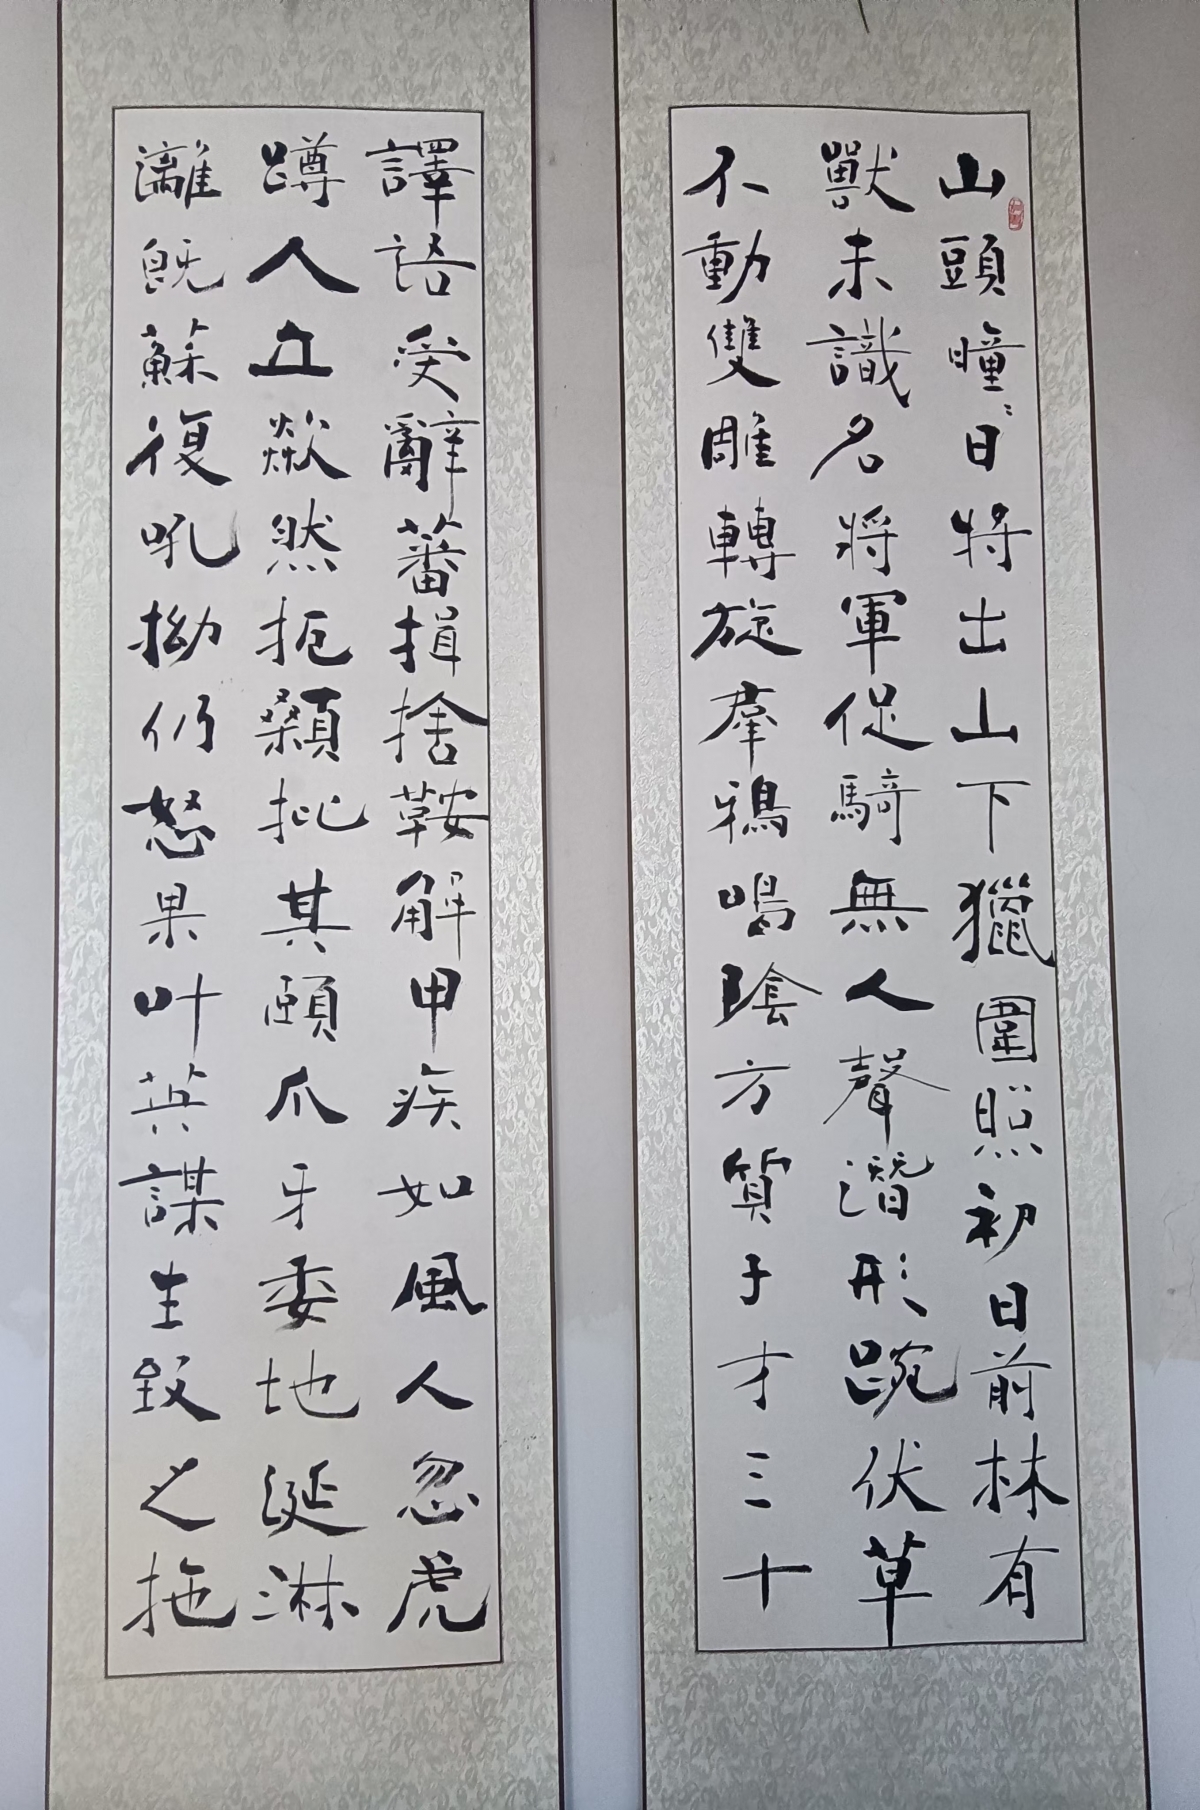 山頭曈〻日将出山下獵圍照初日前林有
獸未識名将軍促騎無人聲潛形踠伏草
不動雙雕轉旋羣鴉鳴陰方質子才三十
譯語受辭蕃揖捨鞍解甲疾如風人忽虎
蹲人立歘然扼顙批其頤爪牙委地涎淋
漓既蘇復吼拗仍怒果叶英謀生致之拖